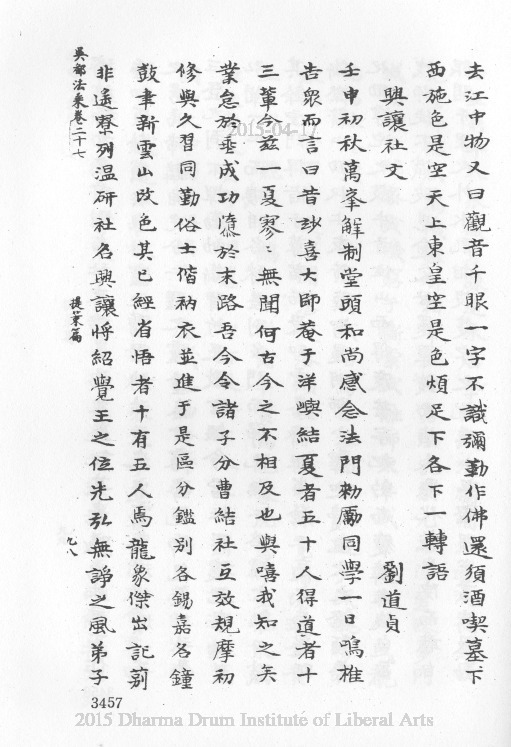 去江中物又曰觀音千眼一字不識彌勒作佛還須酒喫墓下
西施色是空天上東皇空是色煩足下各下一轉語
興讓社文
劉道貞
壬申初秋萬峯解制堂頭和尚感念法門勑勵同學一日鳴椎
告衆而言曰昔玅喜大師菴于洋嶼結夏者五十人得道者十
三輩今茲一夏寥寥無聞何古今之不相及也與嘻我知之矣
業怠於垂成功隳於末路吾今令諸子分曹結社互效規摩初
修與久習同勤俗士偕衲衣並進于是區分鑑別各錫嘉名鐘
鼓聿新雲山改色其已經省悟者十有五人焉龍象傑出記莂
非遙寮列溫研社名興讓將紹覺王之位先弘無諍之風弟子
吳都法乘卷二十七
提葉篇
九八
3457
2015-04-17
2015 Dharma Drum Institute of Liberal Arts